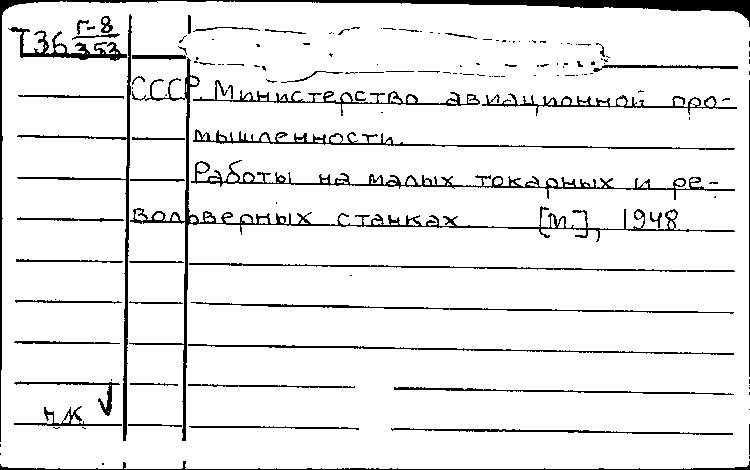 Г-8
Т36 353
СССР. Министерство авиационной про-
мышленности.
Работы на малых токарных и ре-
вольверных станках [М.], 1948.
чк ✓